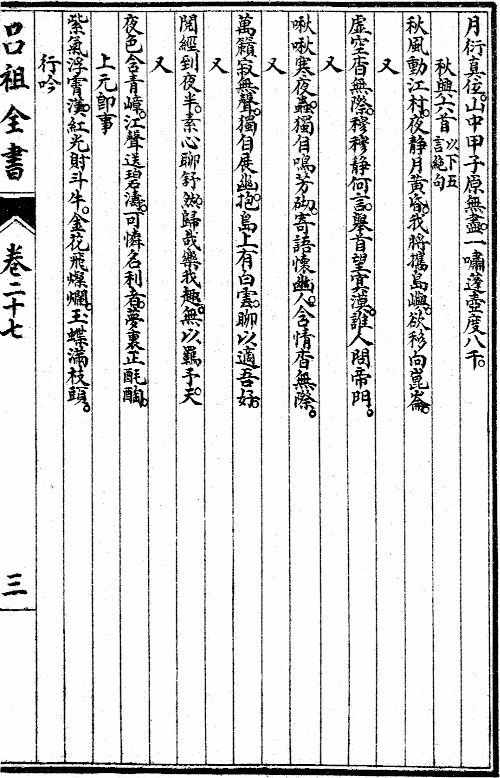 月衍真位。山中甲子原無盡。一嘯蓬壺度八千。
秋興六首以下五言絶句
秋風動江村。夜静月黄昏。我將攜島嶼。欲移向崑崙。
又
虚空杳無際。穆穆静何言。舉首望寞漠。誰人問帝門。
又
啾啾寒夜蟲。獨自鳴芳砌。寄語懷幽人。含情杳無際。
又
萬籟寂無聲。獨自展幽抱。島上有白雲。聊以適吾好。
又
閲經到夜半。素心聊舒然。歸哉樂我趣。無以羈予天
又
夜色含青嶂。江聲送碧濤。可憐名利者。夢裏正酕醄。
上元即事
紫氣浮霄漢。紅光射斗牛。金花飛燦爛。玉蝶滿枝頭。
行吟
呂祖全書
卷二十七
三